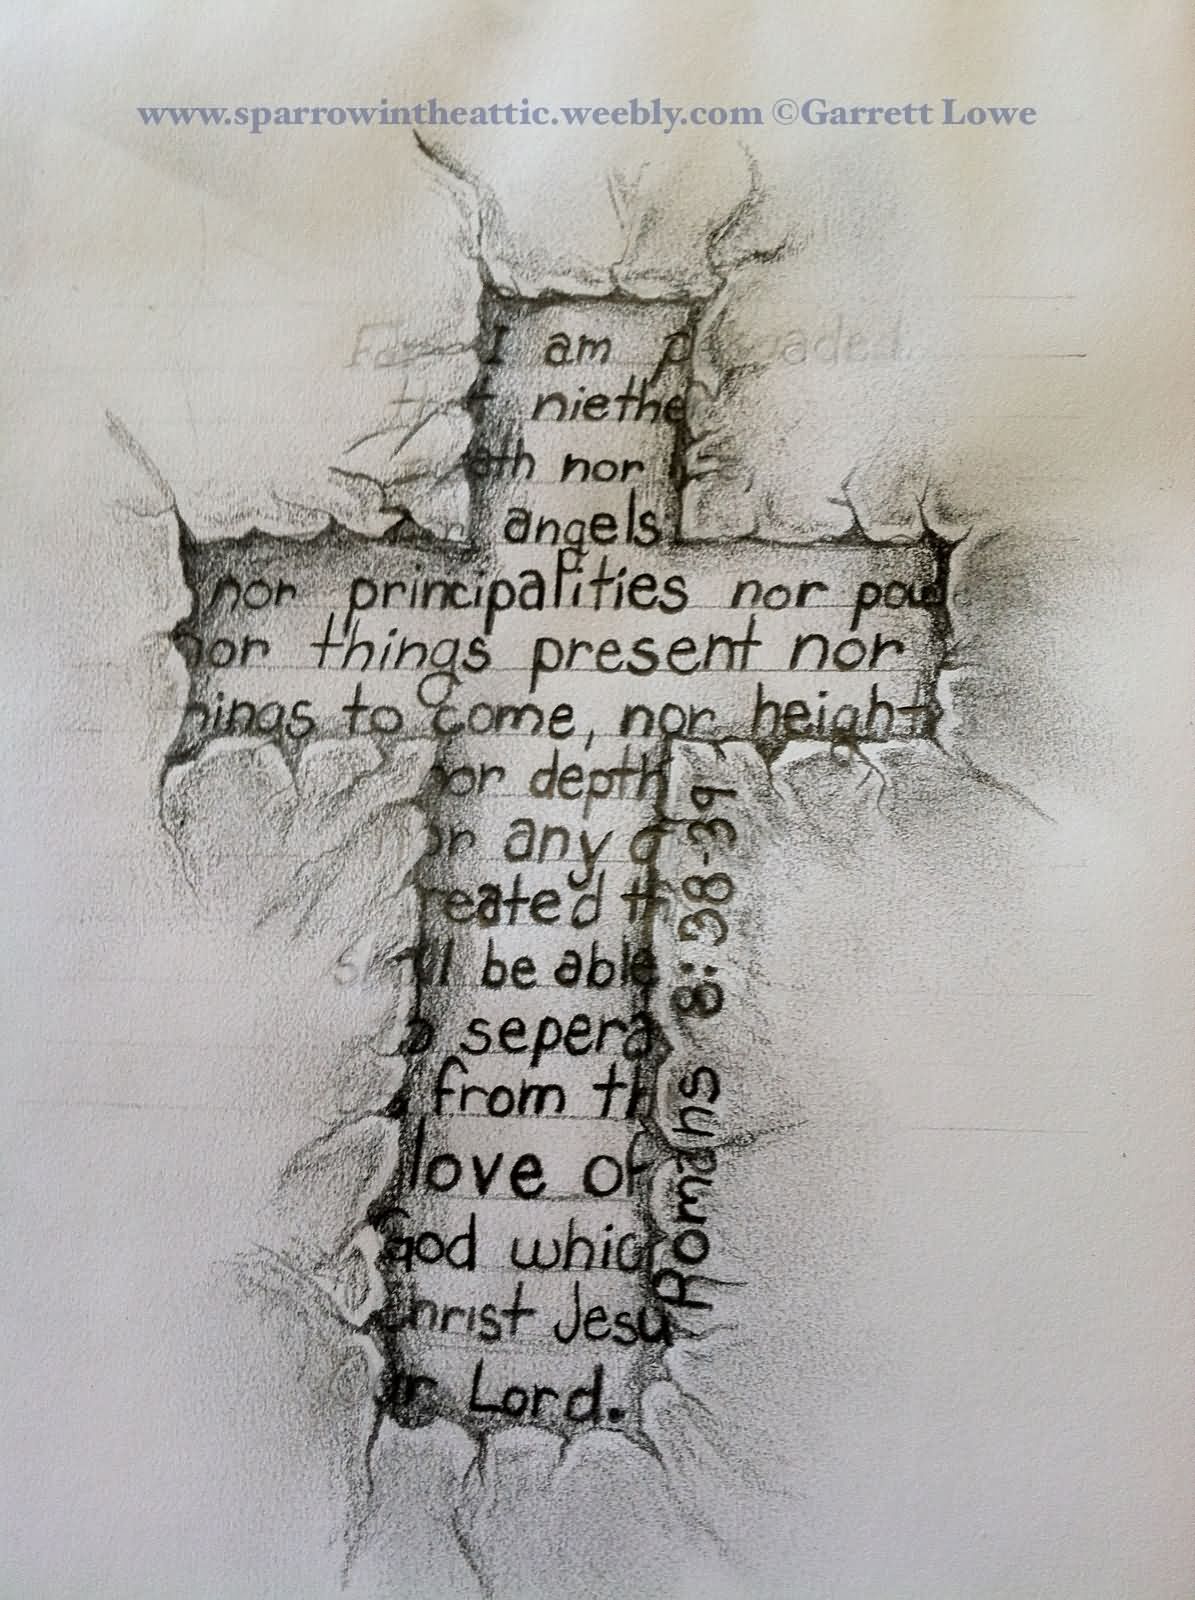 www.sparrowintheattic.weebly.com ©Garrett Lowe
For I am persuaded
that niethe
ath nor
nor angels
nor principalities nor pow
nor things present nor
hings to come, nor height
nor depth
nor any o
reated th
shall be able
to sepera
from th
love of
God which
Christ Jesu
ur Lord.
Romans 8:38-39